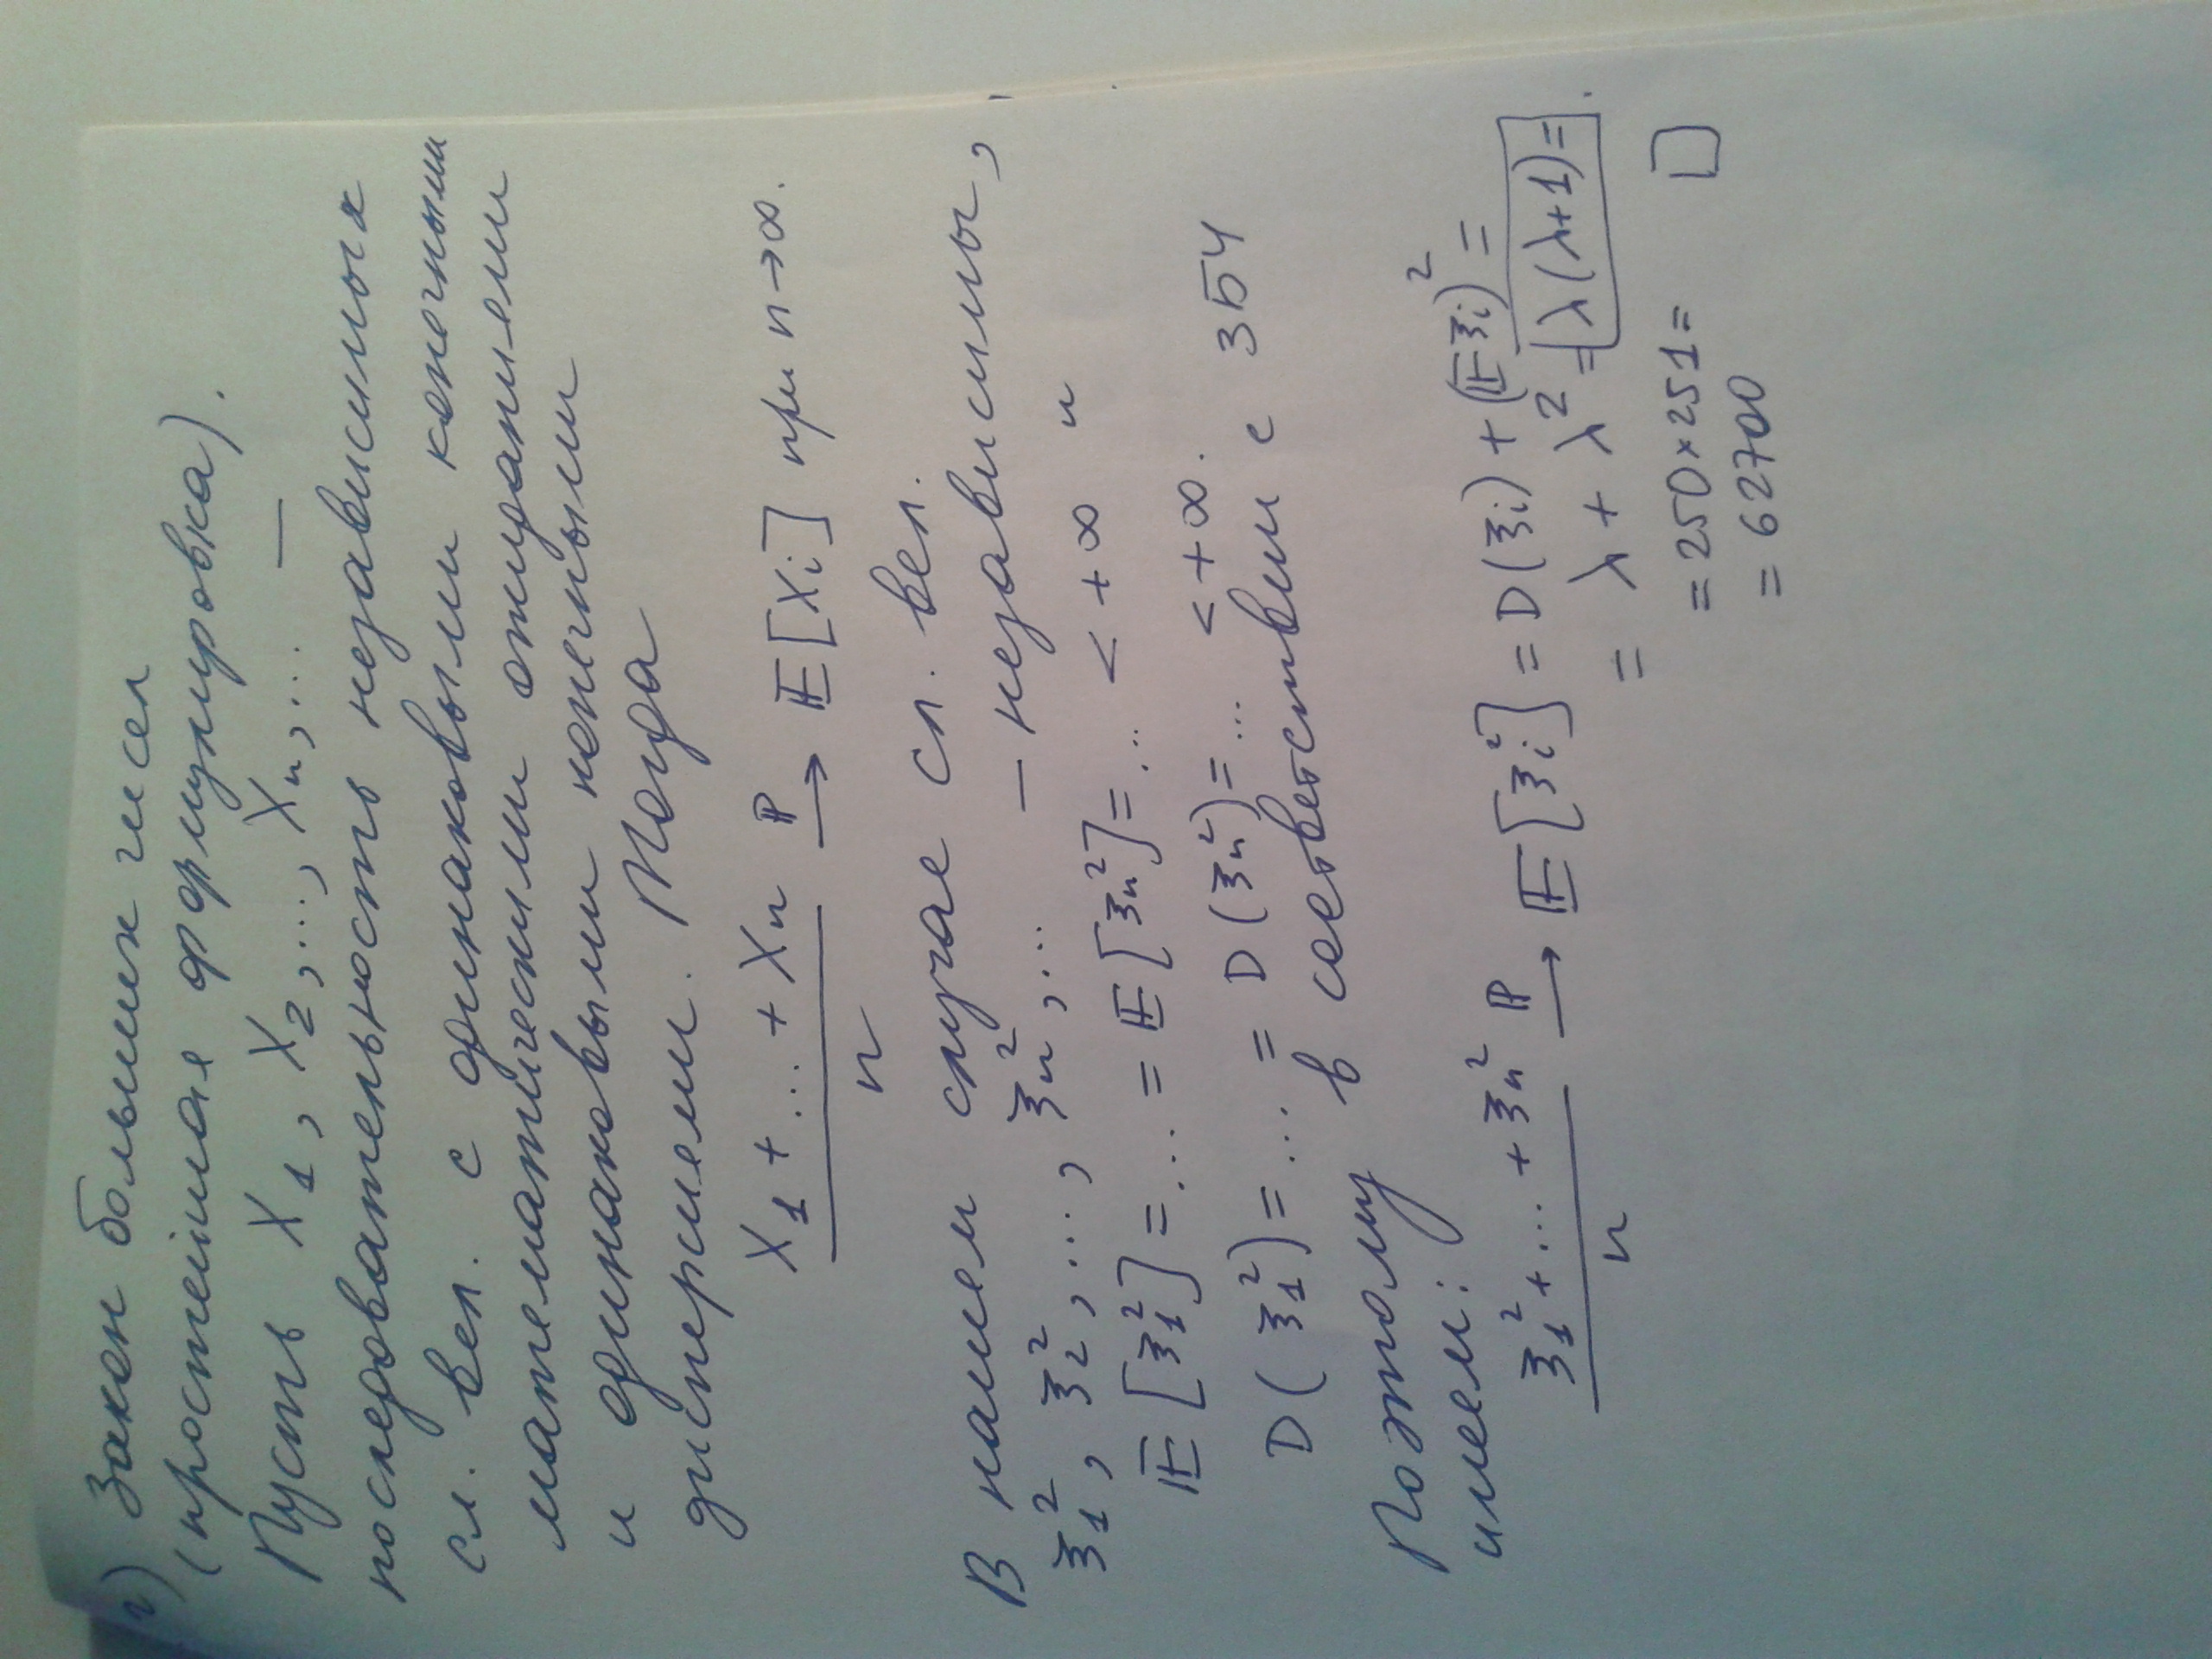 г) Закон больших чисел
(простейшая формулировка).
Пусть X₁, X₂, ..., Xₙ, ... —
последовательность независимых
сл. вел. с одинаковыми конечными
математическими ожиданиями
и одинаковыми конечными
дисперсиями. Тогда
(X₁ + ... + Xₙ)/n →ᴾ 𝔼[Xᵢ] при n→∞.
В нашем случае сл. вел.
ξ₁², ξ₂², ..., ξₙ², ... — независимы,
𝔼[ξ₁²] = ... = 𝔼[ξₙ²] = ... < +∞ и
D(ξ₁²) = ... = D(ξₙ²) = ... < +∞.
Поэтому в соответствии с ЗБЧ
имеем:
(ξ₁² + ... + ξₙ²)/n →ᴾ 𝔼[ξᵢ²] = D(ξᵢ) + (𝔼ξᵢ)² =
= λ + λ² = λ(λ+1) = .
= 250×251 = □
= 62700